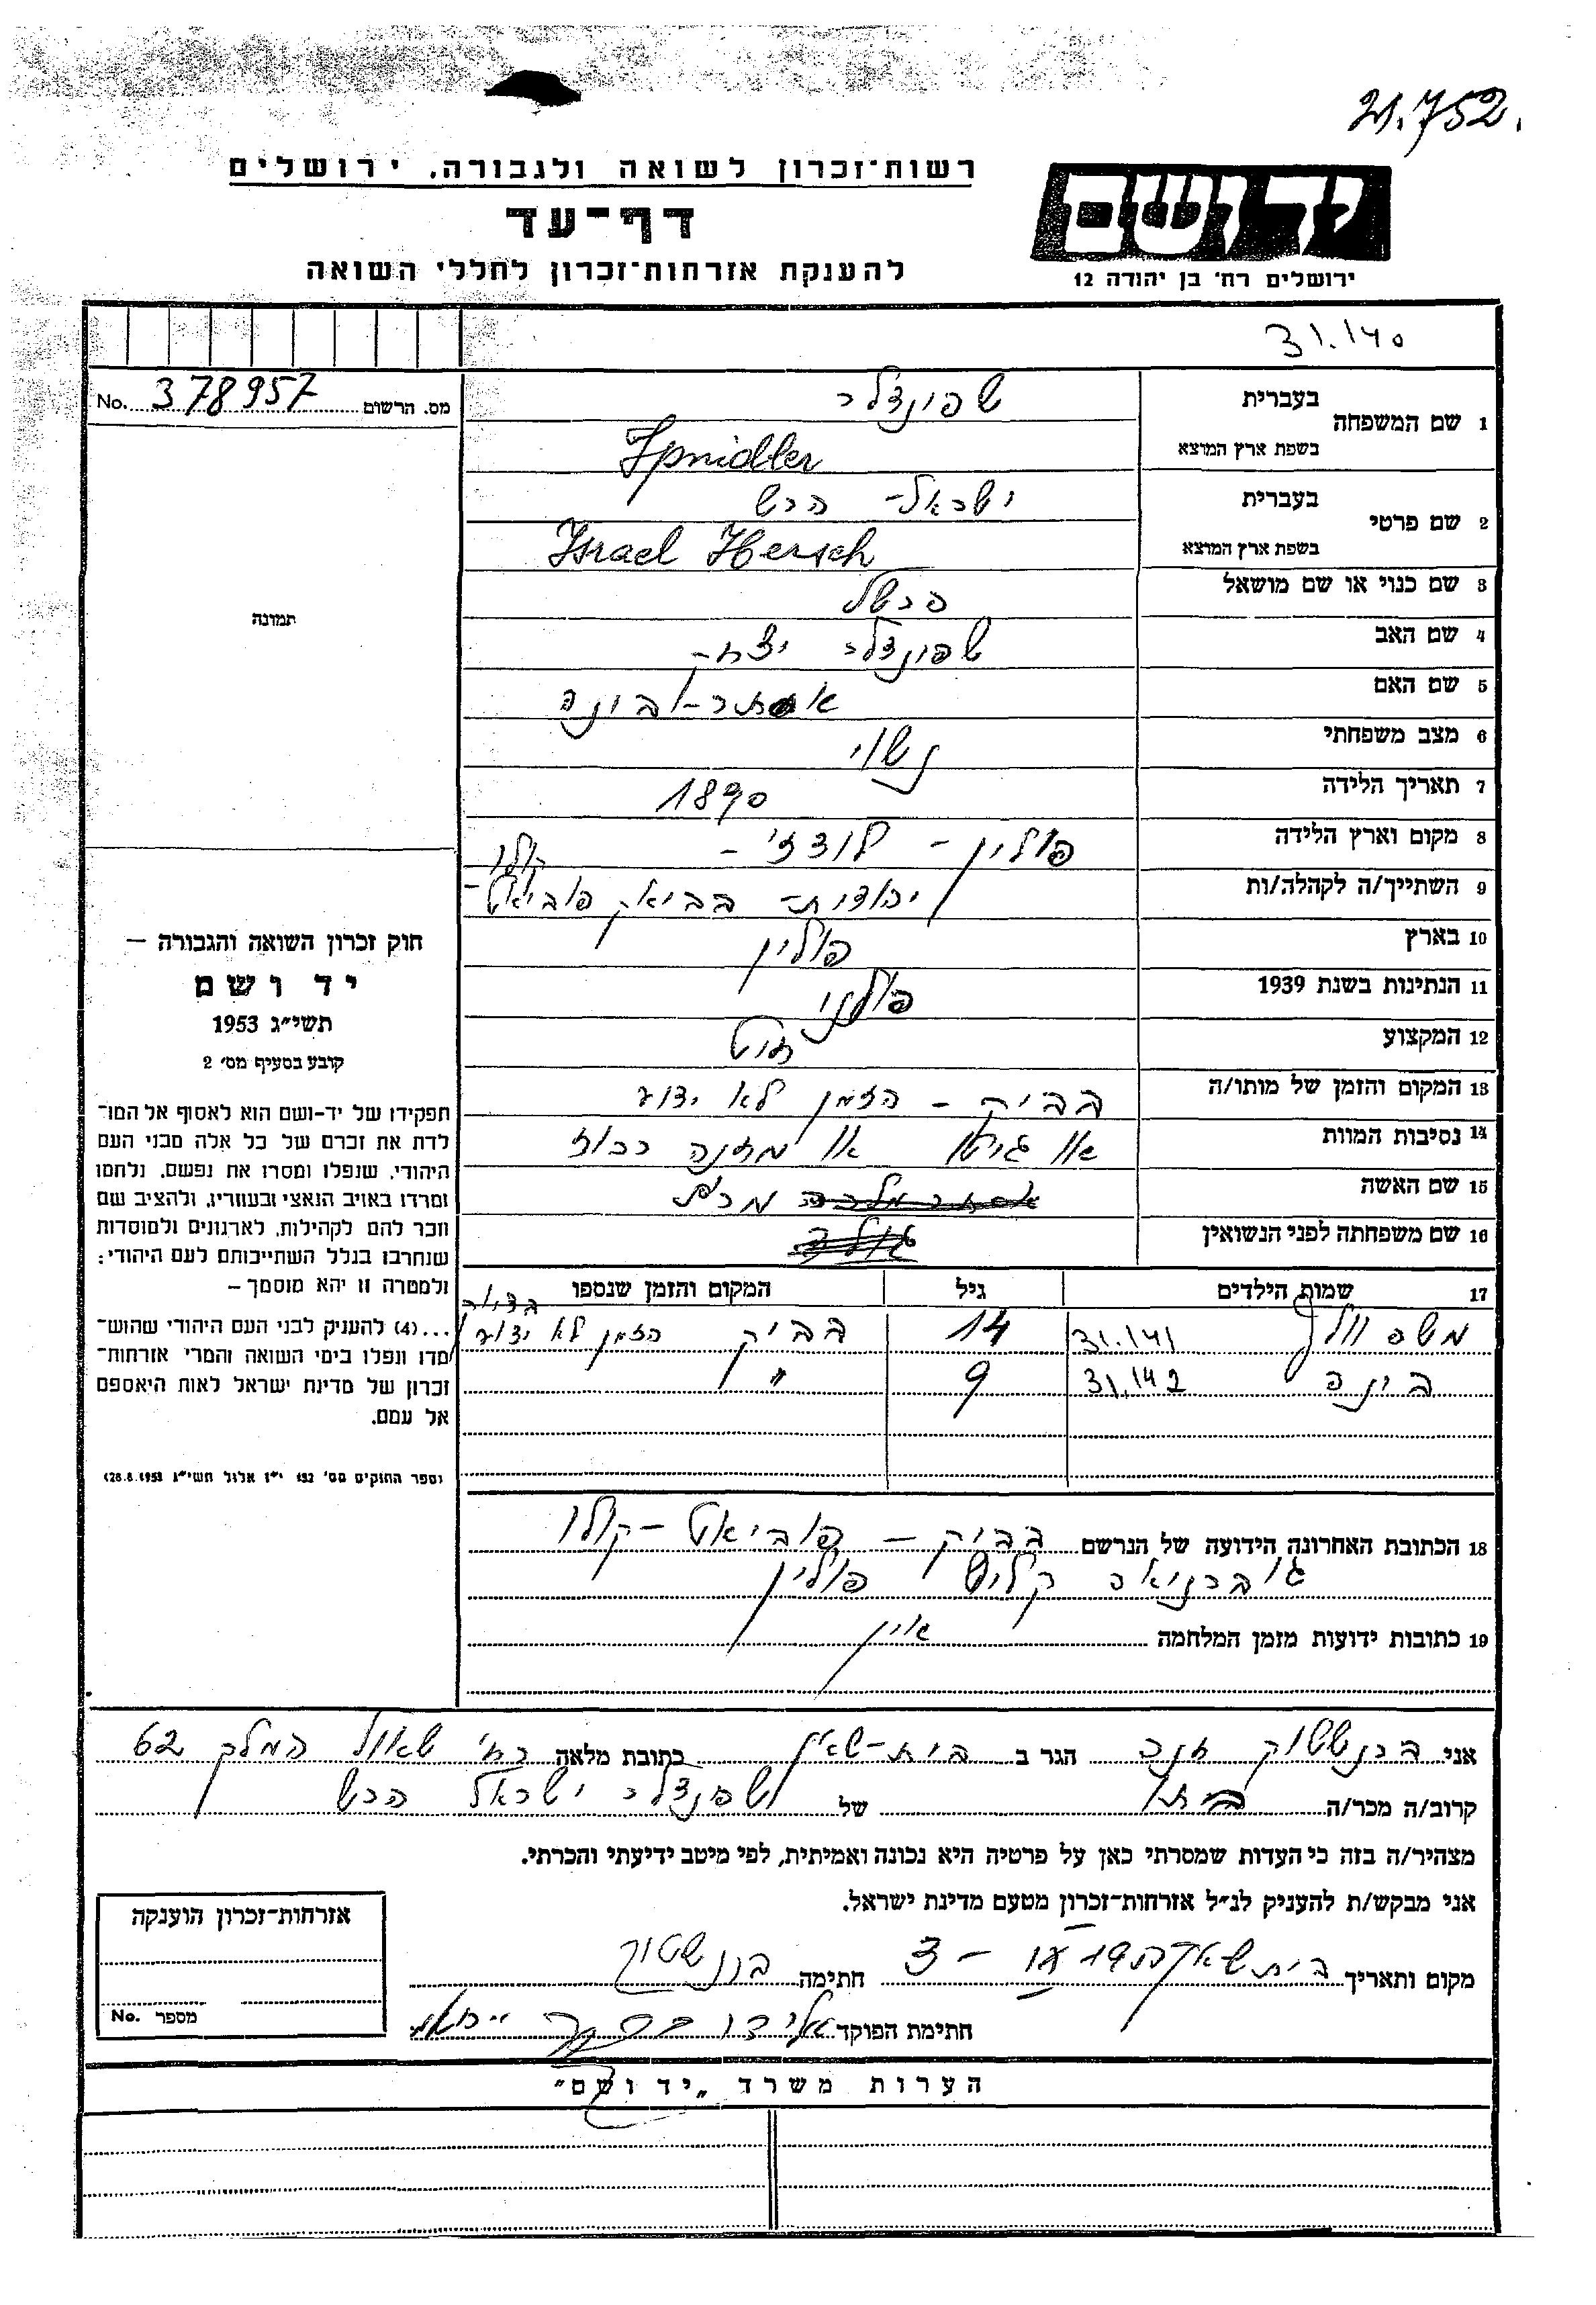 21.752.
רשות-זכרון לשואה ולגבורה, ירושלים
יד ושם
דף-עד
להענקת אזרחות-זכרון לחללי השואה
ירושלים רח' בן יהודה 12
31.140
מס. הרשום 378957 No.
תמונה
1 שם המשפחה
בעברית שפונדלר
בשפת ארץ המוצא
2 שם פרטי
בעברית ישראל- הרש
בשפת ארץ המוצא Israel Hersch
3 שם כנוי או שם מושאל הרשל
4 שם האב שפונדלר יצחק
5 שם האם
6 מצב משפחתי נשוי
7 תאריך הלידה 1890
8 מקום וארץ הלידה פולין - לודז' -
9 השתייך/ה לקהלה/ות יהודית- בביאק פוביאט- קולו
10 בארץ פולין
11 הנתינות בשנת 1939 פולני
12 המקצוע חייט
13 המקום והזמן של מותו/ה בביק - הזמן לא ידוע
14 נסיבות המוות או גיטו או מחנה רכוז
15 שם האשה
16 שם משפחתה לפני הנשואין
17 שמות הילדים גיל המקום והזמן שנספו
משה וולף 31.141 14 בביק הזמן לא ידוע בדיוק
בינה 31.142 9 "
18 הכתובת האחרונה הידועה של הנרשם בביק - פוביאט - קולו
גוברניאה קליש פולין
19 כתובות ידועות מזמן המלחמה אין
חוק זכרון השואה והגבורה –
יד ושם
תשי"ג 1953
קובע בסעיף מס' 2
תפקידו של יד-ושם הוא לאסוף אל המו-
לדת את זכרם של כל אלה מבני העם
היהודי, שנפלו ומסרו את נפשם, נלחמו
ומרדו באויב הנאצי ובעוזריו, ולהציב שם
וזכר להם לקהילות, לארגונים ולמוסדות
שנחרבו בגלל השתייכותם לעם היהודי;
ולמטרה זו יהא מוסמך –
...(4) להעניק לבני העם היהודי שהוש-
מדו ונפלו בימי השואה והמרי אזרחות-
זכרון של מדינת ישראל לאות היאספם
אל עמם.
(ספר החוקים מס' 132 י"ז אלול תשי"ג 28.8.1953)
אני ברנשטוק חנה הגר ב בית-שאן כתובת מלאה רח' שאול המלך 62
קרוב/ה מכר/ה בתו של שפנדלר ישראל הרש
מצהיר/ה בזה כי העדות שמסרתי כאן על פרטיה היא נכונה ואמיתית, לפי מיטב ידיעתי והכרתי.
אני מבקש/ת להעניק לנ"ל אזרחות-זכרון מטעם מדינת ישראל.
מקום ותאריך בית שאן חתימה ברנשטוק
חתימת הפוקד
אזרחות-זכרון הוענקה
מספר No.
הערות משרד „יד ושם"